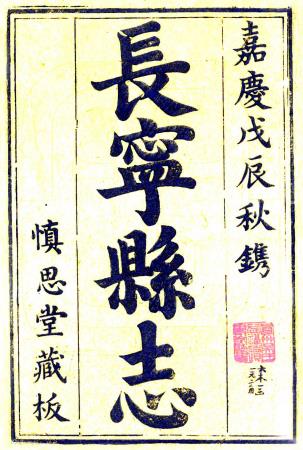 嘉慶戊辰秋鐫
長寧縣志
慎思堂藏板